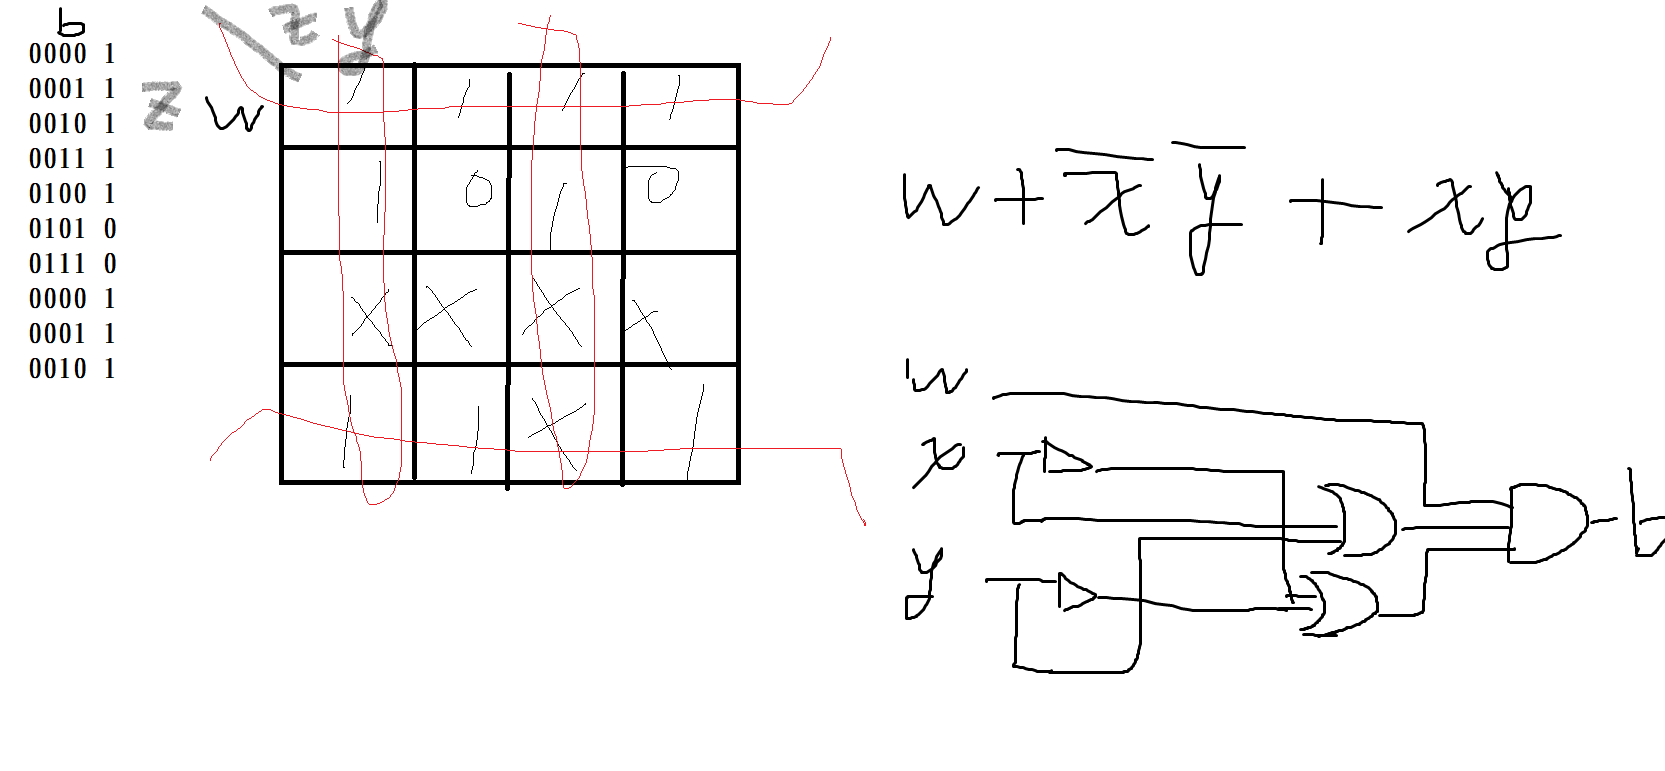 b
0000 1
0001 1
0010 1
0011 1
0100 1
0101 0
0111 0
0000 1
0001 1
0010 1
z y
z w
1 1 1 1
1 0 1 0
X X X X
1 1 X 1
w + x̅ y̅ + xy
w
x
y
b